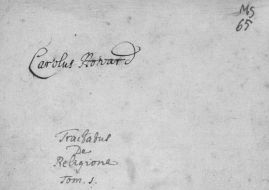 MS
65
Carolus Howard
Tractatus
De
Religione
Tom. 1.